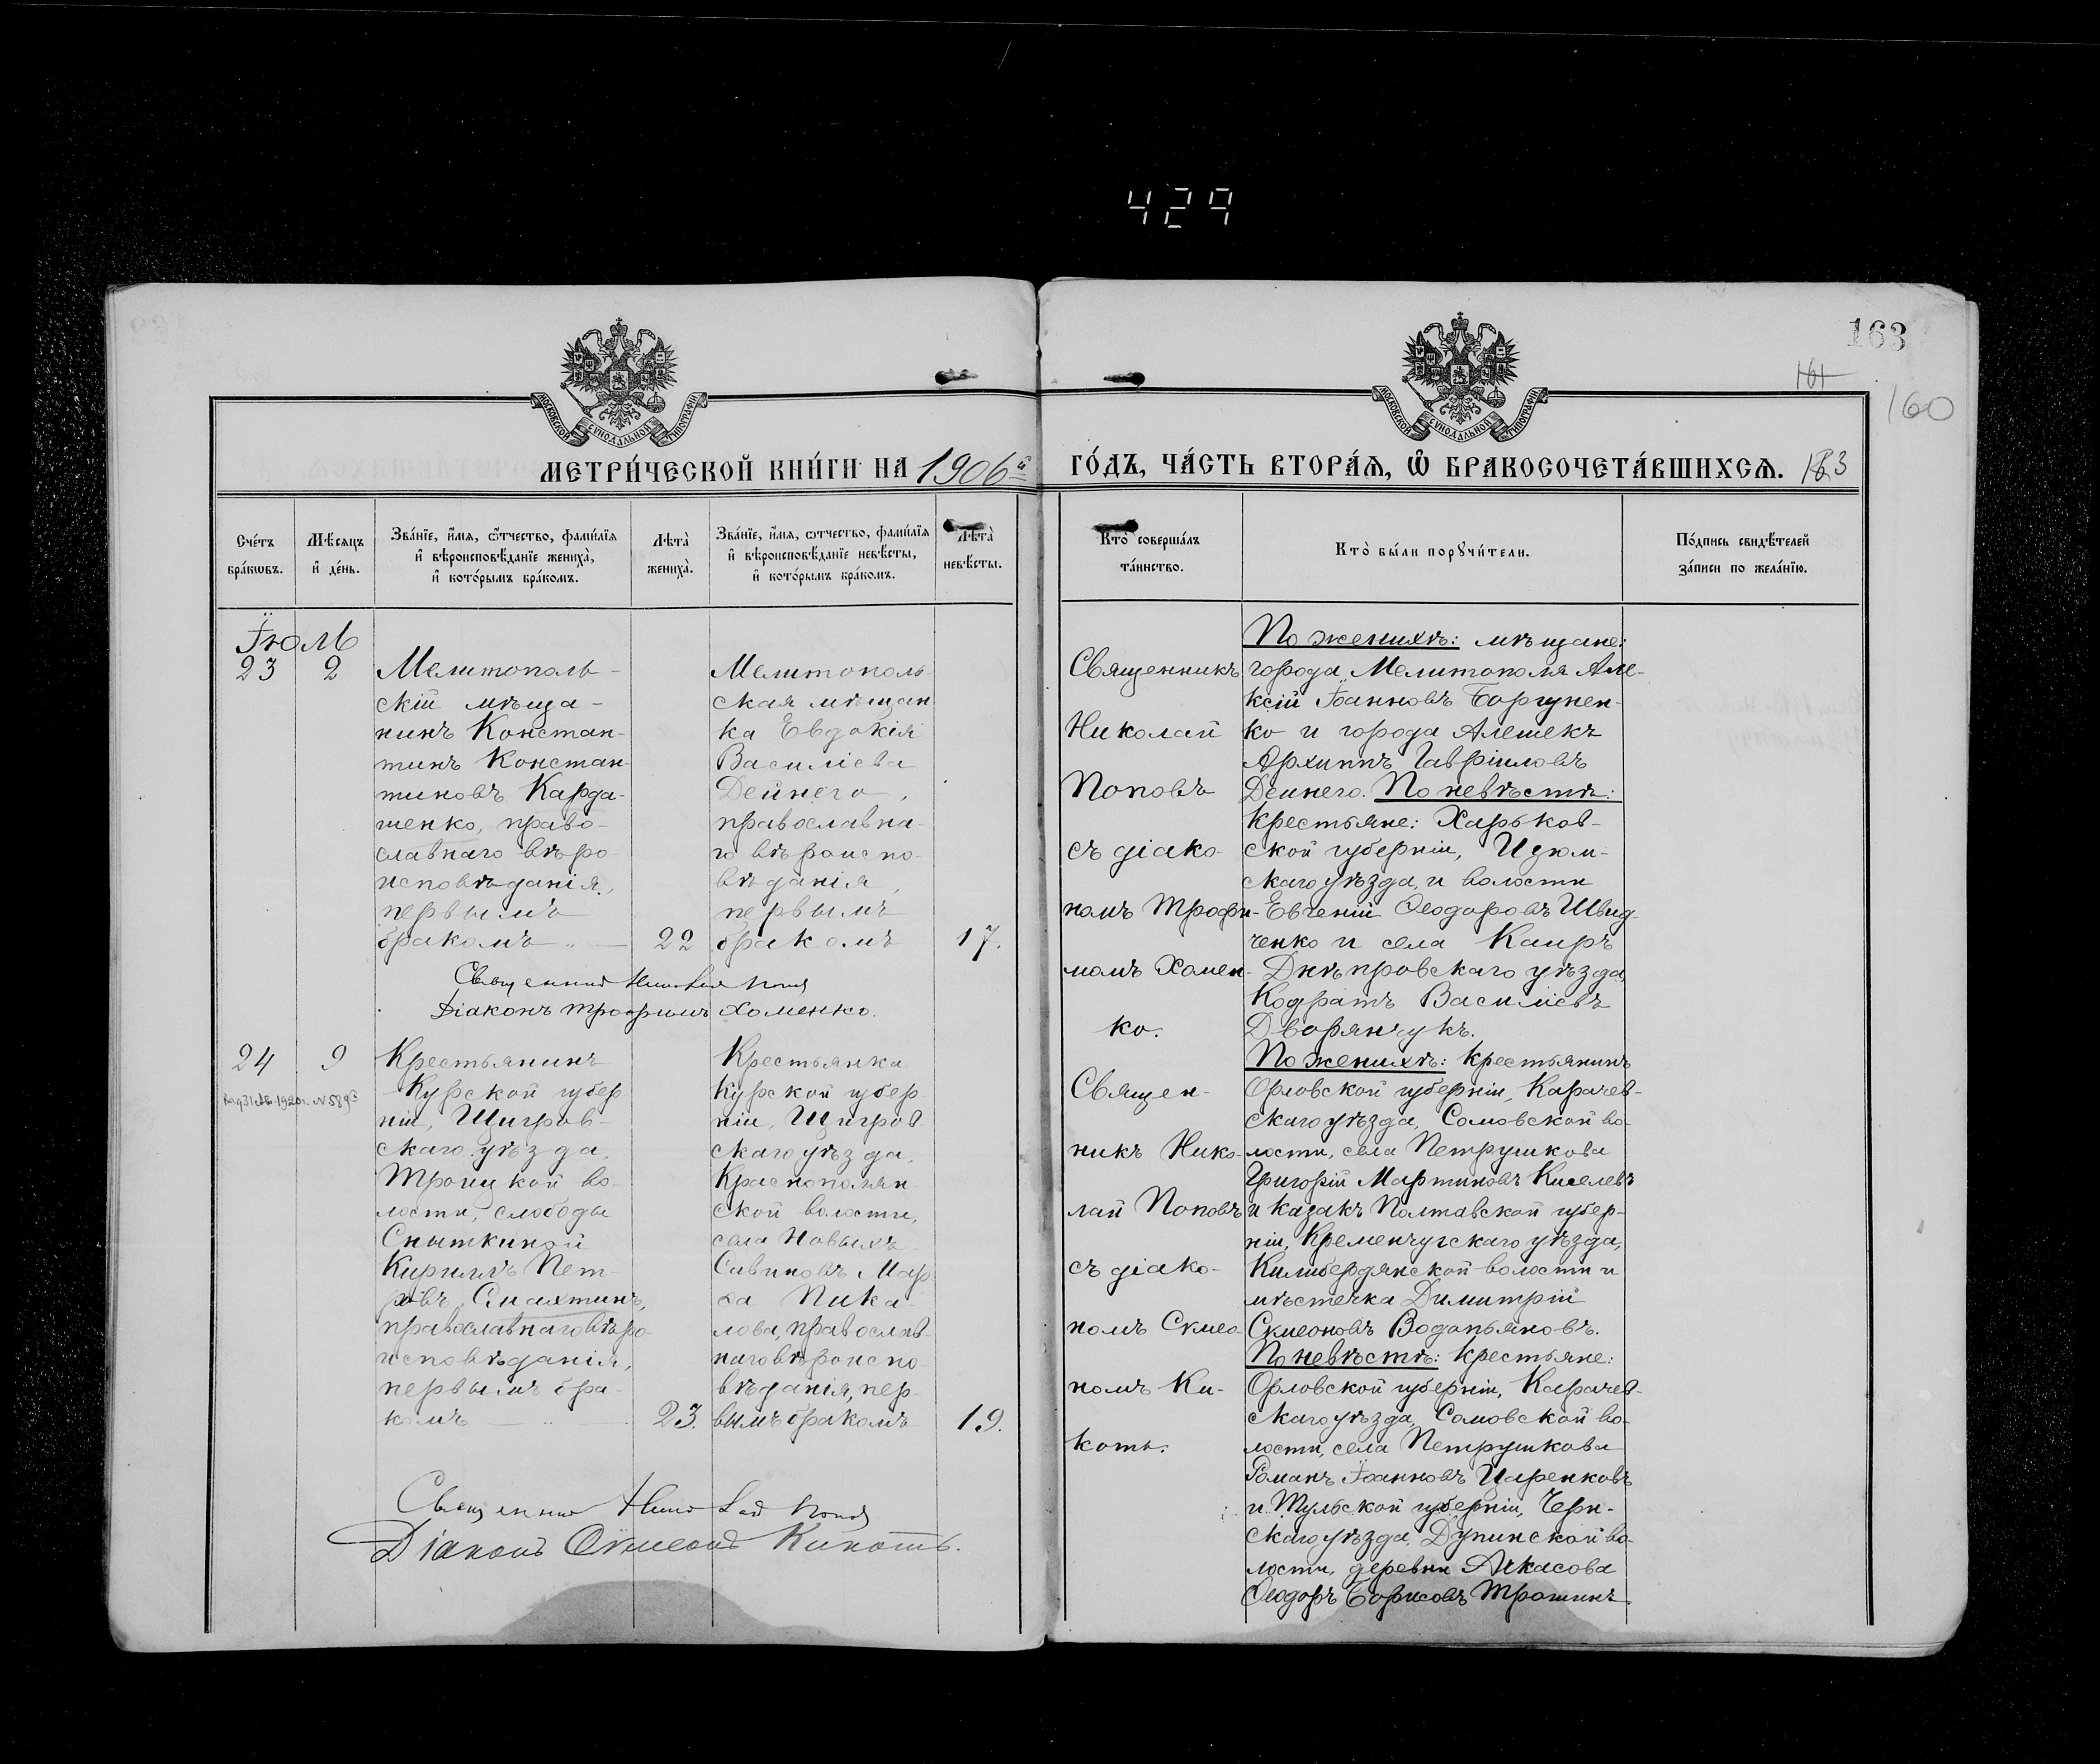 429
163
161
160
МОСКОВСКОЙ СѴНОДАЛЬНОЙ ТИПОГРАФІИ
МОСКОВСКОЙ СѴНОДАЛЬНОЙ ТИПОГРАФІИ
МЕТРИ́ЧЕСКОЙ КНИ́ГИ НА 1906й
ГО́ДЪ, ЧА́СТЬ ВТОРА́Ѧ, Ѽ БРАКОСОЧЕТА́ВШИХСѦ. 163
Сче́тъ бра́кѡвъ.
Мѣ́сяцъ и҆ де́нь.
Зва́нїе, и҆́мѧ, ѻ҆́тчество, фамѝлїѧ и҆ вѣроисповѣ́данїе жениха̀, и҆ кото́рымъ бра́комъ.
Лѣта̀ жениха̀.
Зва́нїе, и҆́мѧ, ѻ҆́тчество, фамѝлїѧ и҆ вѣроисповѣ́данїе невѣ́сты, и҆ кото́рымъ бра́комъ.
Лѣта̀ невѣ́сты.
Кто̀ соверша́лъ та́инство.
Кто̀ бы́ли порꙋчи́тели.
По́дпись свидѣ́телей за́писи по жела́нїю.
Іюль
23
2
Мелитополь-
скій мѣща-
нинъ Констан-
тинъ Констан-
тиновъ Карда-
шенко, право-
славнаго вѣро-
исповѣданія,
первымъ
бракомъ
22
Мелитополь-
ская мѣщан-
ка Евдокія
Василіева
Дейнего,
православна-
го вѣроиспо-
вѣданія,
первымъ
бракомъ
17.
Священникъ
Николай
Поповъ
съ діако-
номъ Трофи-
момъ Хомен-
ко.
По женихѣ: мѣщане:
города Мелитополя Але-
ксій Іоанновъ Боргунен-
ко и города Алешекъ
Архиппъ Гавріиловъ
Дейнего. По невѣстѣ:
Крестьяне: Харьков-
ской губерніи, Изюм-
скаго уѣзда, и волости
Евгеній Ѳеодоровъ Швид-
ченко и села Каиръ
Днѣпровскаго уѣзда,
Кодратъ Василіевъ
Дворянчукъ.
Священникъ Николай Поповъ
Діаконъ Трофимъ Хоменко.
24
9
Крестьянинъ
Курской губер
ніи, Щигров-
скаго уѣзда,
Троицкой во-
лости, слободы
Сныткиной
Кириллъ Пет-
ровъ Смахтинъ,
православнаго вѣро-
исповѣданія,
первымъ бра-
комъ
23.
Крестьянка
Курской губер-
ніи, Щигров-
скаго уѣзда,
Краснополян-
ской волости,
села Новыхъ
Савиновъ Мар-
ѳа Пика-
лова, православ-
наго вѣроиспо-
вѣданія, пер-
вымъ бракомъ
19.
Священ-
никъ Нико-
лай Поповъ
съ діако-
номъ Сѵмео-
номъ Ки-
коть.
По женихѣ: крестьянинъ
Орловской губерніи, Карачев-
скаго уѣзда, Сомовской во-
лости, села Петрушкова
Григорій Мартиновъ Киселевъ
и казакъ Полтавской губер-
ніи, Кременчугскаго уѣзда,
Килибердянской волости и
мѣстечка Димитрій
Сѵмеоновъ Водопьяновъ.
По невѣстѣ: крестьяне:
Орловской губерніи, Карачев-
скаго уѣзда, Сомовской во-
лости, села Петрушкова
Романъ Іоанновъ Царенковъ
и Тульской губерніи, Черн-
скаго уѣзда, Дупинской во-
лости, деревни Аткасова
Ѳеодоръ Борисовъ Трошинъ.
Священникъ Николай Поповъ
Діаконъ Сѵмеонъ Кикоть.